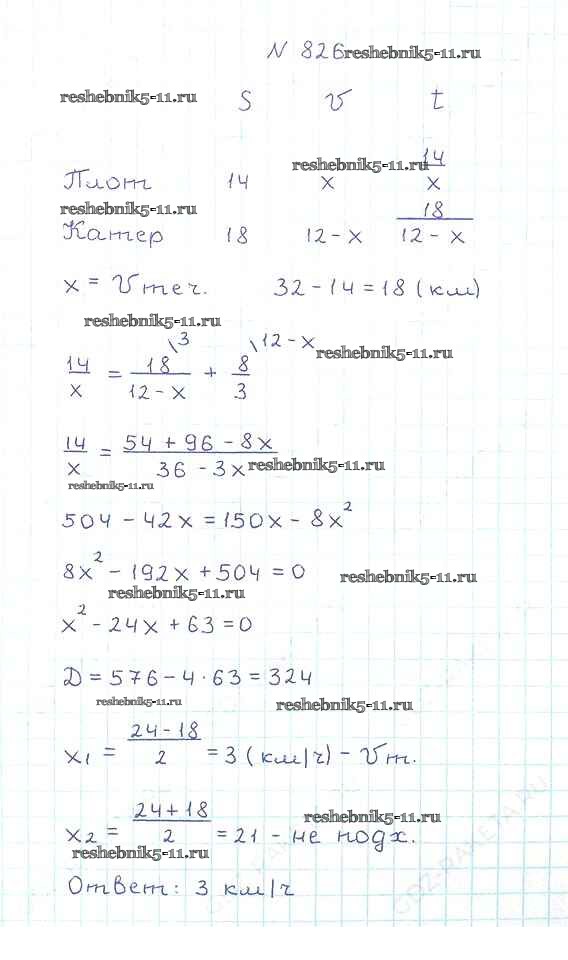 N 826 reshebnik5-11.ru
reshebnik5-11.ru S V t
reshebnik5-11.ru
Плот 14 x 14/x
reshebnik5-11.ru
Катер 18 12-x 18/(12-x)
x = Vтеч. 32-14=18 (км)
reshebnik5-11.ru
14/x = 18/(12-x) \3 + 8/3 \12-x
reshebnik5-11.ru
14/x = (54+96-8x)/(36-3x) reshebnik5-11.ru
reshebnik5-11.ru
504-42x=150x-8x²
8x²-192x+504=0 reshebnik5-11.ru
reshebnik5-11.ru
x²-24x+63=0
D=576-4·63=324
reshebnik5-11.ru reshebnik5-11.ru
x1 = (24-18)/2 = 3 (км/ч) - Vт.
x2 = (24+18)/2 = 21 - не подх.
reshebnik5-11.ru
reshebnik5-11.ru
Ответ: 3 км/ч
GDZ-RAKETA.RU